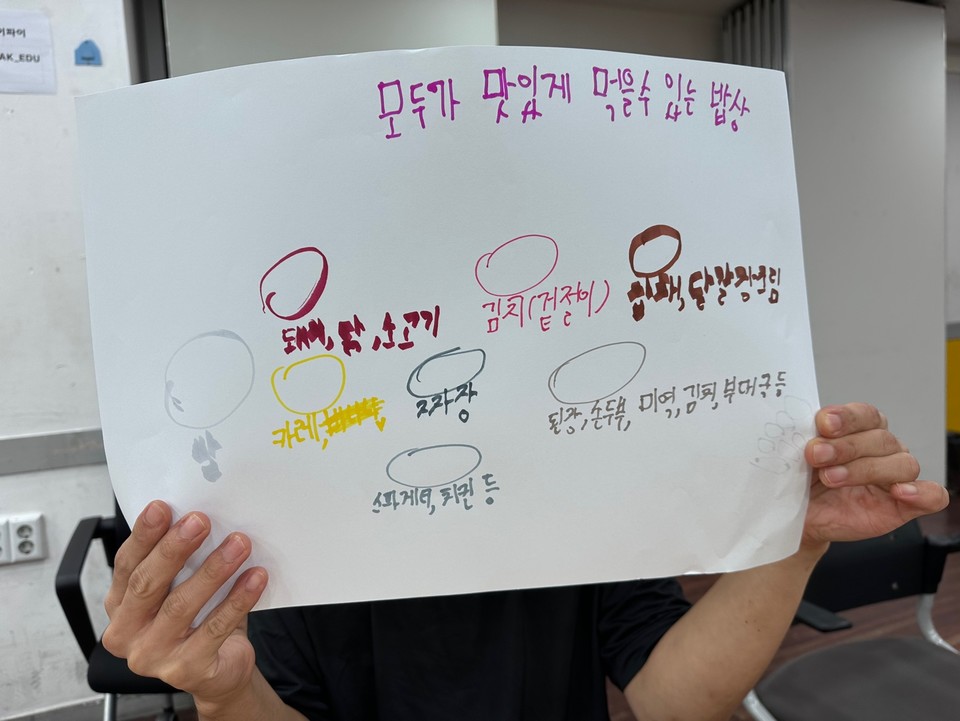 이파이
AK_EDU
모두가 맛있게 먹을수 있는 밥상
돼지, 닭, 소고기
김치(겉절이)
달걀장조림
카레,
짜장
된장, 순두부, 미역, 김치, 부대국 등
스파게티, 치킨 등